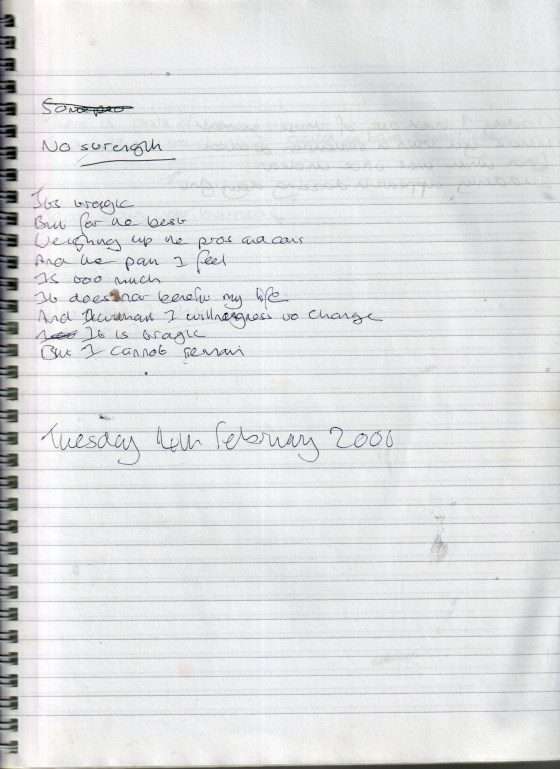 No strength
Its tragic
But for the best
Weighing up the pros and cons
And the pain I feel
Is too much
It does not benefit my life
And I willingness to change
It is tragic
But I cannot remain
Tuesday 14th February 2006